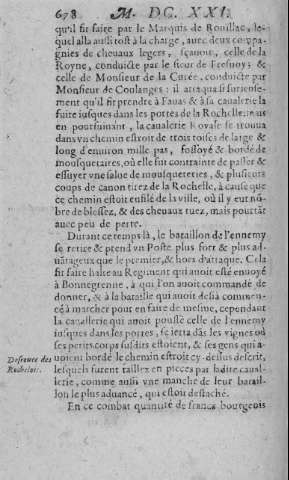 678 M. DC. XXI.
qu'il fit faire par le Marquis de Rouillac, le-
quel alla aussi tost à la charge, auec deux compa-
gnies de cheuaux legers, sçauoir, celle de la
Royne, conduicte par le sieur de Fresnoy; &
celle de Monsieur de la Curée, conduicte par
Monsieur de Coulanges: il attaqua si furieuse-
ment qu'il fit prendre à Fauas & à sa caualerie la
fuite iusques dans les portes de la Rochelle: mais
en poursuiuant, la caualerie Royale se trouua
dans vn chemin estroit de trois toises de large &
long d'enuiron mille pas, fossoyé & bordé de
mousquetaires, où elle fut contrainte de passer &
essuyer vne salue de mousqueteries, & plusieurs
coups de canon tirez de la Rochelle, à cause que
ce chemin estoit enfilé de la ville, où il y eut nō-
bre de blessez, & des cheuaux tuez, mais pourtāt
auec peu de perte.
Durant ce temps là, le bataillon de l'ennemy
se retire & prend vn Poste plus fort & plus ad-
uātageux que le premier, & hors d'attaque. Cela
fit faire halte au Regiment qui auoit esté enuoyé
à Bonnegrenne, à qui l'on auoit commandé de
donner, & à la bataille qui auoit desià commen-
cé à marcher pour en faire de mesme, cependant
la cauallerie qui auoit poussé celle de l'ennemy
iusques dans les portes, se ietta dās les vignes où
ses petits corps susdits estoient, & ses gens qui a-
uoient bordé le chemin estroit cy-dessus descrit,
Desroute des Rochelois.
lesquels furent taillez en pieces par ladite caual-
lerie, comme aussi vne manche de leur batail-
lon le plus aduancé, qui estoit destaché.
En ce combat quantité de francs bourgeois